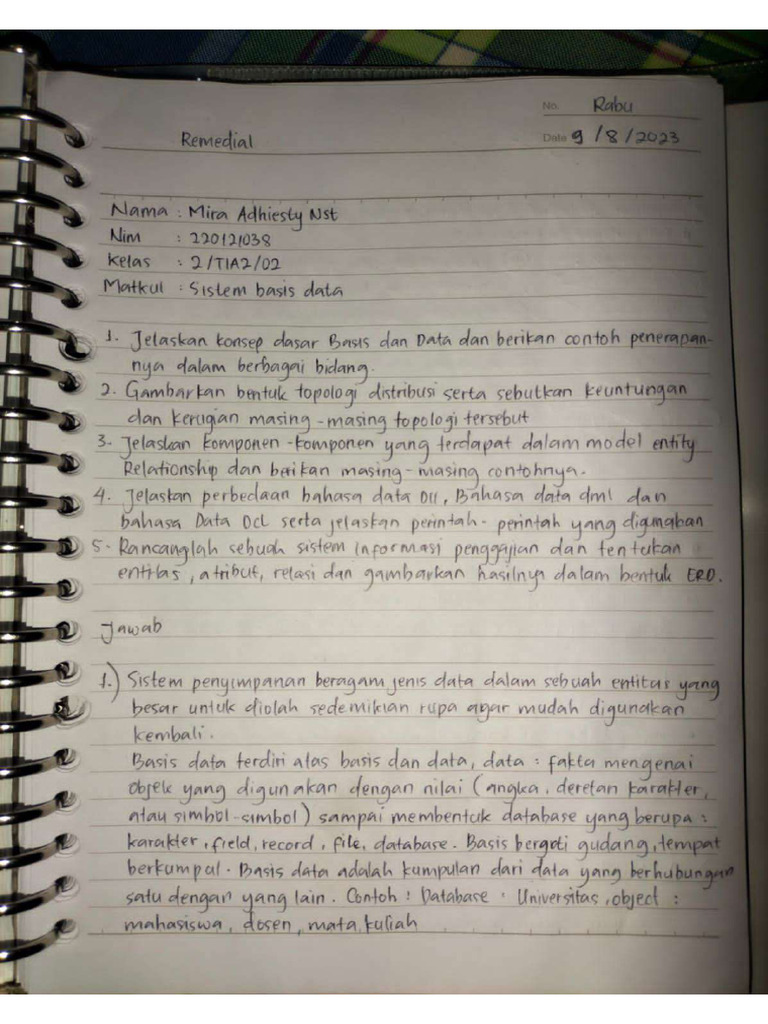 No. Rabu
Remedial
Date 9/8/2023
Nama : Mira Adhiesty Nst
Nim : 220121038
Kelas : 2/TIA2/02
Matkul : Sistem basis data
1. Jelaskan konsep dasar Basis dan Data dan berikan contoh penerapan-
nya dalam berbagai bidang.
2. Gambarkan bentuk topologi distribusi serta sebutkan keuntungan
dan kerugian masing-masing topologi tersebut
3. Jelaskan komponen-komponen yang terdapat dalam model entity
Relationship dan berikan masing-masing contohnya.
4. Jelaskan perbedaan bahasa data Dll, Bahasa data dml dan
bahasa Data Dcl serta jelaskan perintah-perintah yang digunakan
5. Rancanglah sebuah sistem informasi penggajian dan tentukan
entitas, atribut, relasi dan gambarkan hasilnya dalam bentuk ERD.
Jawab
1.) Sistem penyimpanan beragam jenis data dalam sebuah entitas yang
besar untuk diolah sedemikian rupa agar mudah digunakan
kembali.
Basis data terdiri atas basis dan data, data : fakta mengenai
objek yang digunakan dengan nilai (angka, deretan karakter,
atau simbol-simbol) sampai membentuk database yang berupa :
karakter, field, record, file, database. Basis bergoti gudang, tempat
berkumpul. Basis data adalah kumpulan dari data yang berhubungan
satu dengan yang lain. Contoh : Database : Universitas, object :
mahasiswa, dosen, mata kuliah